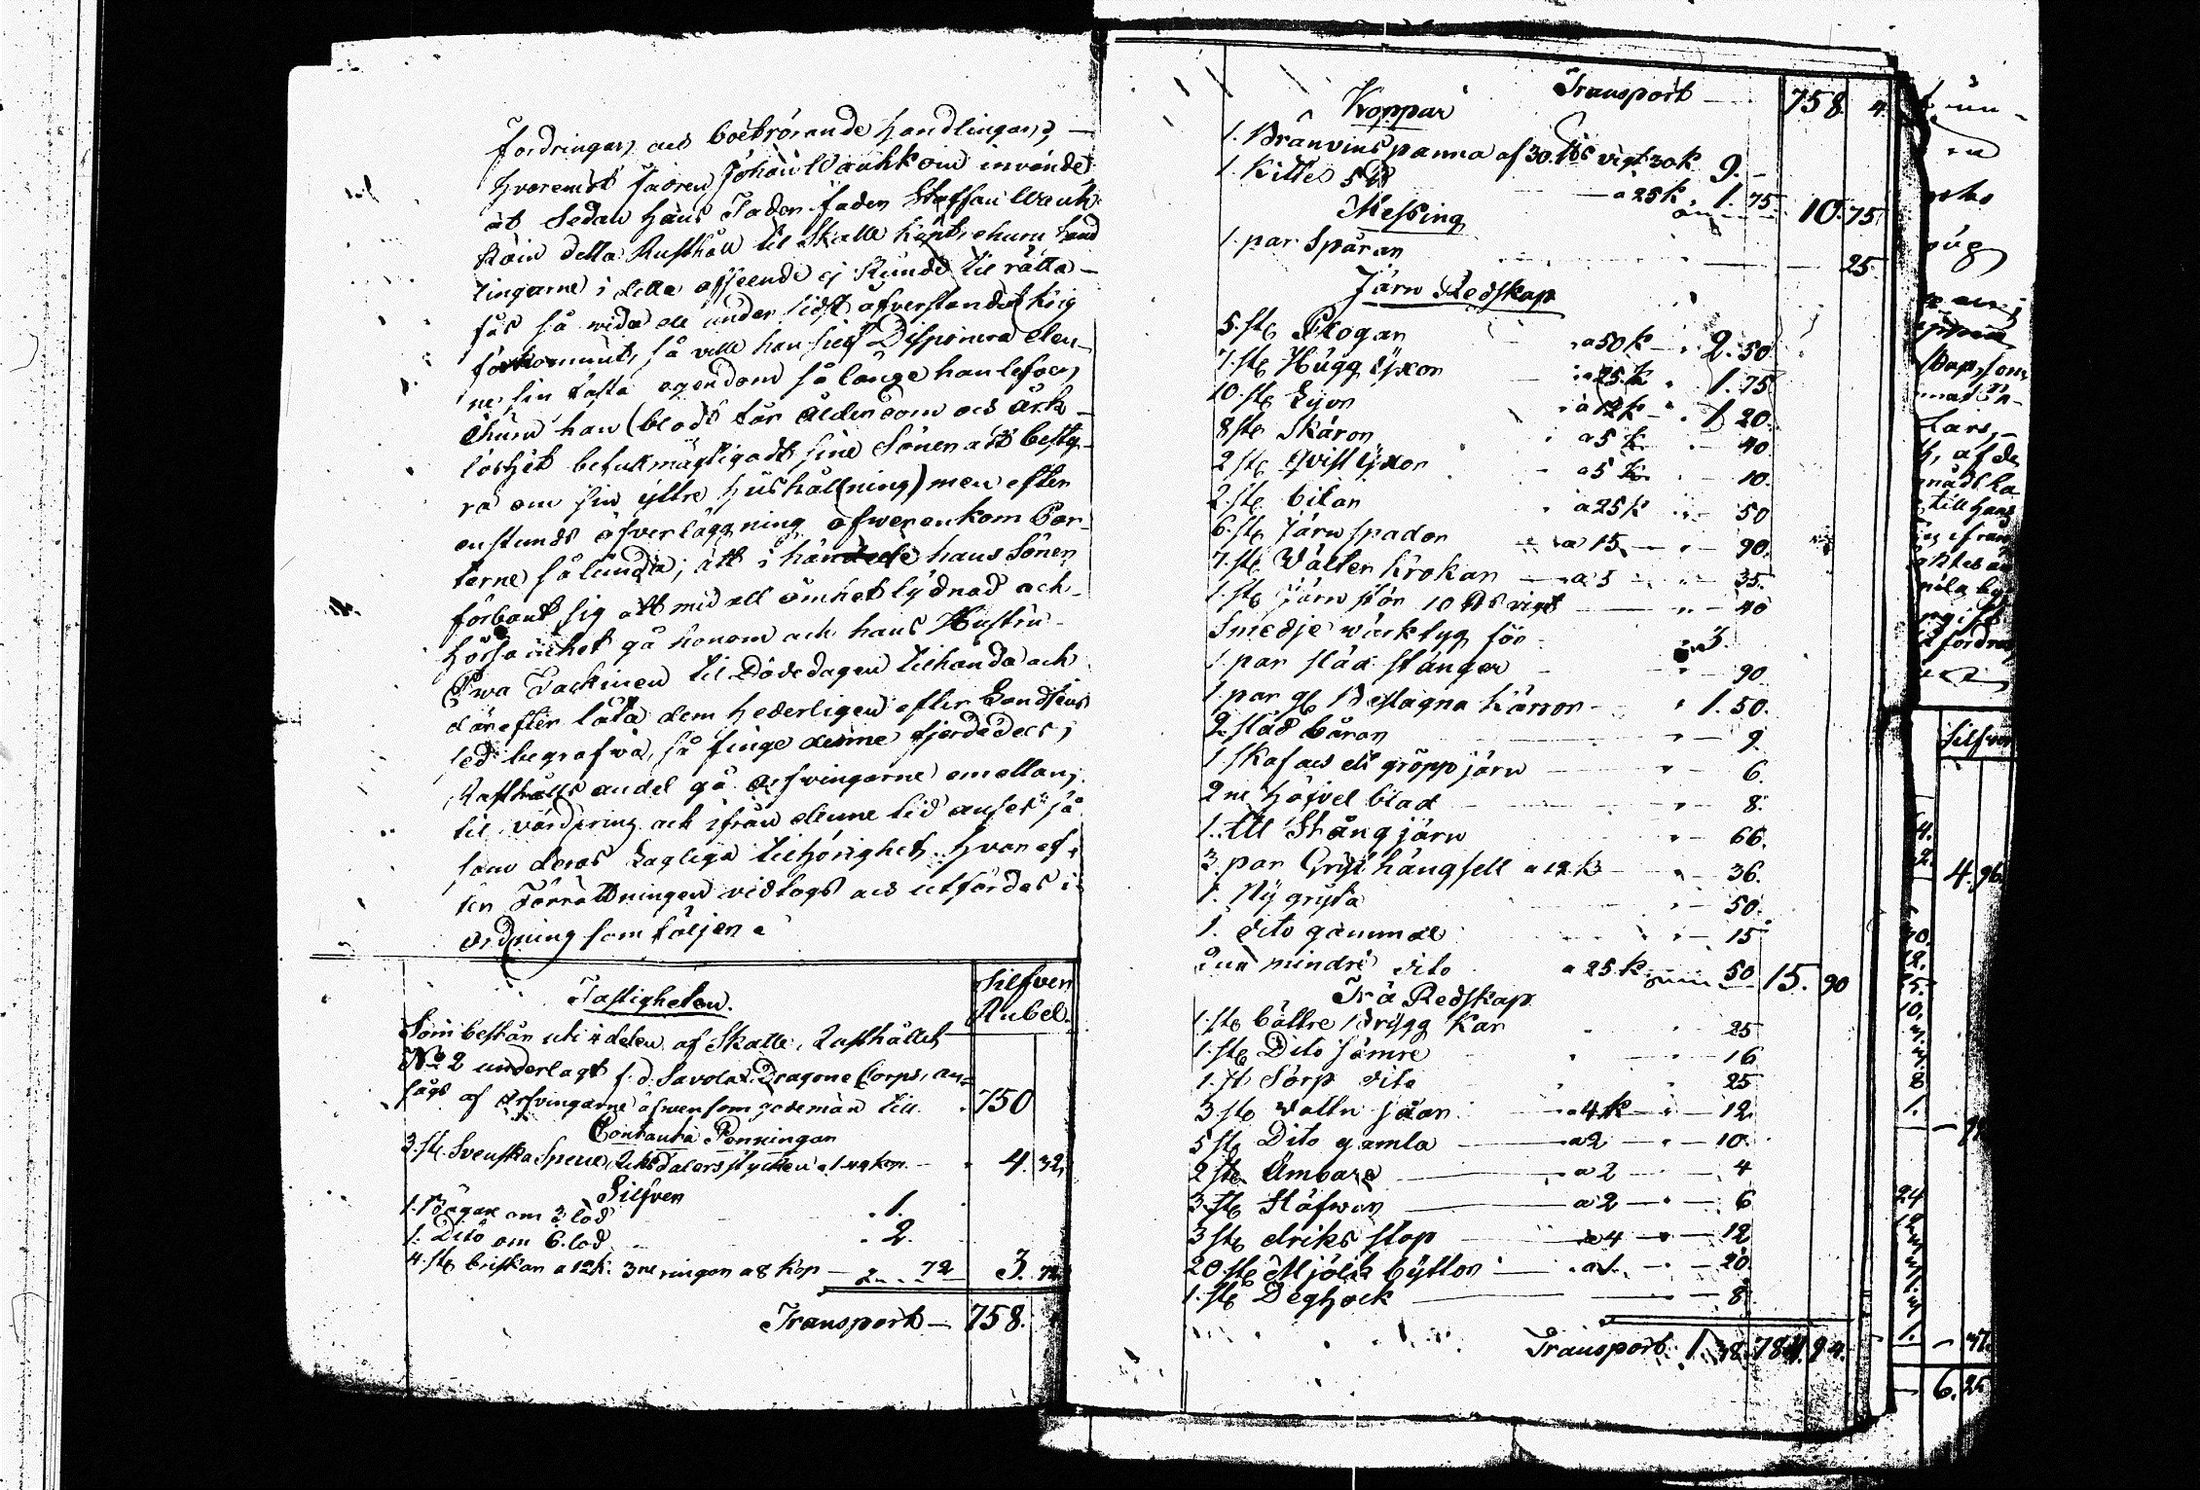 fordringar, och boet rörande handlingar, —
hvaremot fadren Johan Wauhkoin invände
at sedan hans Faders fader Staffan Wauh-
koin detta Rusthåll til Skatte köpt, ehuru hand
lingarne i detta afseende ej kunde til rätta —
fås så vida de under sidst öfverståndet krig
förkommit, så ville han sielf Disponera den-
ne sin fasta egendom så länge han lefver,
ehuru han (blott för ålderdom och ork-
löshet befullmägtigadt sine Söner att besty-
ra om sin yttre hushållning) men efter
en stunds öfverläggning öfverenkom Par-
terne sålunda; att i hans Söner
förbant sig att med all ömhet lydnad och
hörsamhet gå honom och hans Hustru
Ewa Tackinen til Dödedagen tilhanda och
därefter låta dem hederligen efter Landsens
sed begrafva, så finge denne fjerdedels
Rusthålls andel gå arfvingarne emellan,
til värdering och ifrån denne tid anses så
som deras Lagliga tilhörighet. hvaref-
ter Förrättningen vidtogs och utfördes i
ordning som följer
Silfver
Rubel.
Fastigheten.
Som består uti ¼ delen af Skatte Rusthållet
No 2 underlagt f. d. Savolax Dragone Corps, an-
sågs af Arfvingarne äfven som godemän till 750
Contanta Penningar
3. st. Svenska Specie Riksdalers stycken a 1.44 kop. 4. 32
Silfver
1. Bägare om 3 lod 1.
1. Dito om 6. lod 2.
4. st. briskor a 12 k. 3ne ringar a 8 kop — 72 3. 72
Transport — 758.
Transport — 758. 4.
Koppar
1. Bränvins panna af 30. ℔s vigt 30 k 9. —
1. Kittel 5 ℔ — a 25 k 1. 75 10. 75.
Messing
1. par Spåran 25.
Järn Redskap
5. st. Plogar a 50 k 2. 50
7. st. Hugg Yxor a 25. k 1. 75
10. st. Lijor a 12 k 1 20.
8 st. Skäror a 5 k 40
2 st. qvist yxor a 5 k 10.
2. st. bilor a 25 k 50
6. st. Järn spador a 15 — 90.
7. st. Välter krokar — a 5 35.
1. st. Järn stör 10 ℔s vigt 40
Smedje wärktyg för 3.
1. par släd stänger 90
1. par Beslagna kärror 1. 50.
2 släd båran 9.
1 skaf och ett gröpp järn 6.
2 ne höfvel blad 8.
1. ℔ Stång järn 66.
3. par Gryt hängsell a 12 k 36.
1. Ny gryta 50.
1. dito gammal 15
Två mindre dito a 25 k. 50 15. 90
Trä Redskap
1. st. bättre Brygg kar 25
1. st. Dito sämre 16
1. st Sörp dito 25
3 st. Vattu såar a 4 k 12
5 st. Dito gamla a 2 10.
2 st. Ämbare a 2 4
3. st. Stäfwor a 2 6
3 st. driks stop a 4 12
20. st. Mjölk byttor a 1. 20
1. st. Deghoek 8
Transport. 1. 38. 784. 94.
Silfver
4. 96
6. 25